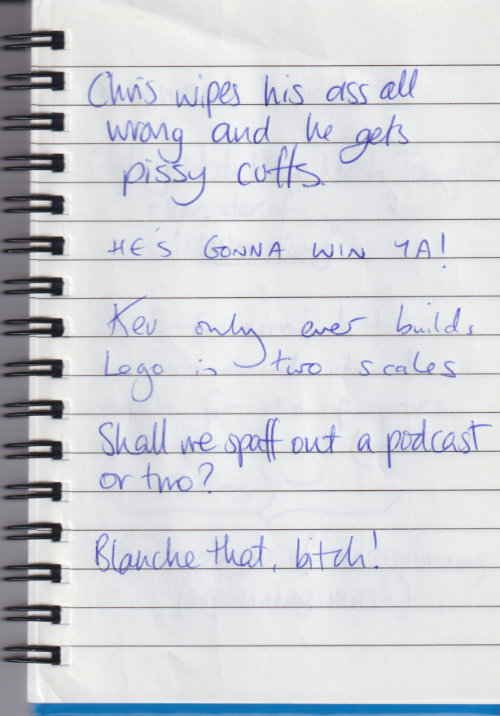 Chris wipes his ass all
wrong and he gets
pissy cuffs.
HE'S GONNA WIN YA!
Kev only ever builds
Lego in two scales
Shall we spaff out a podcast
or two?
Blanche that, bitch!